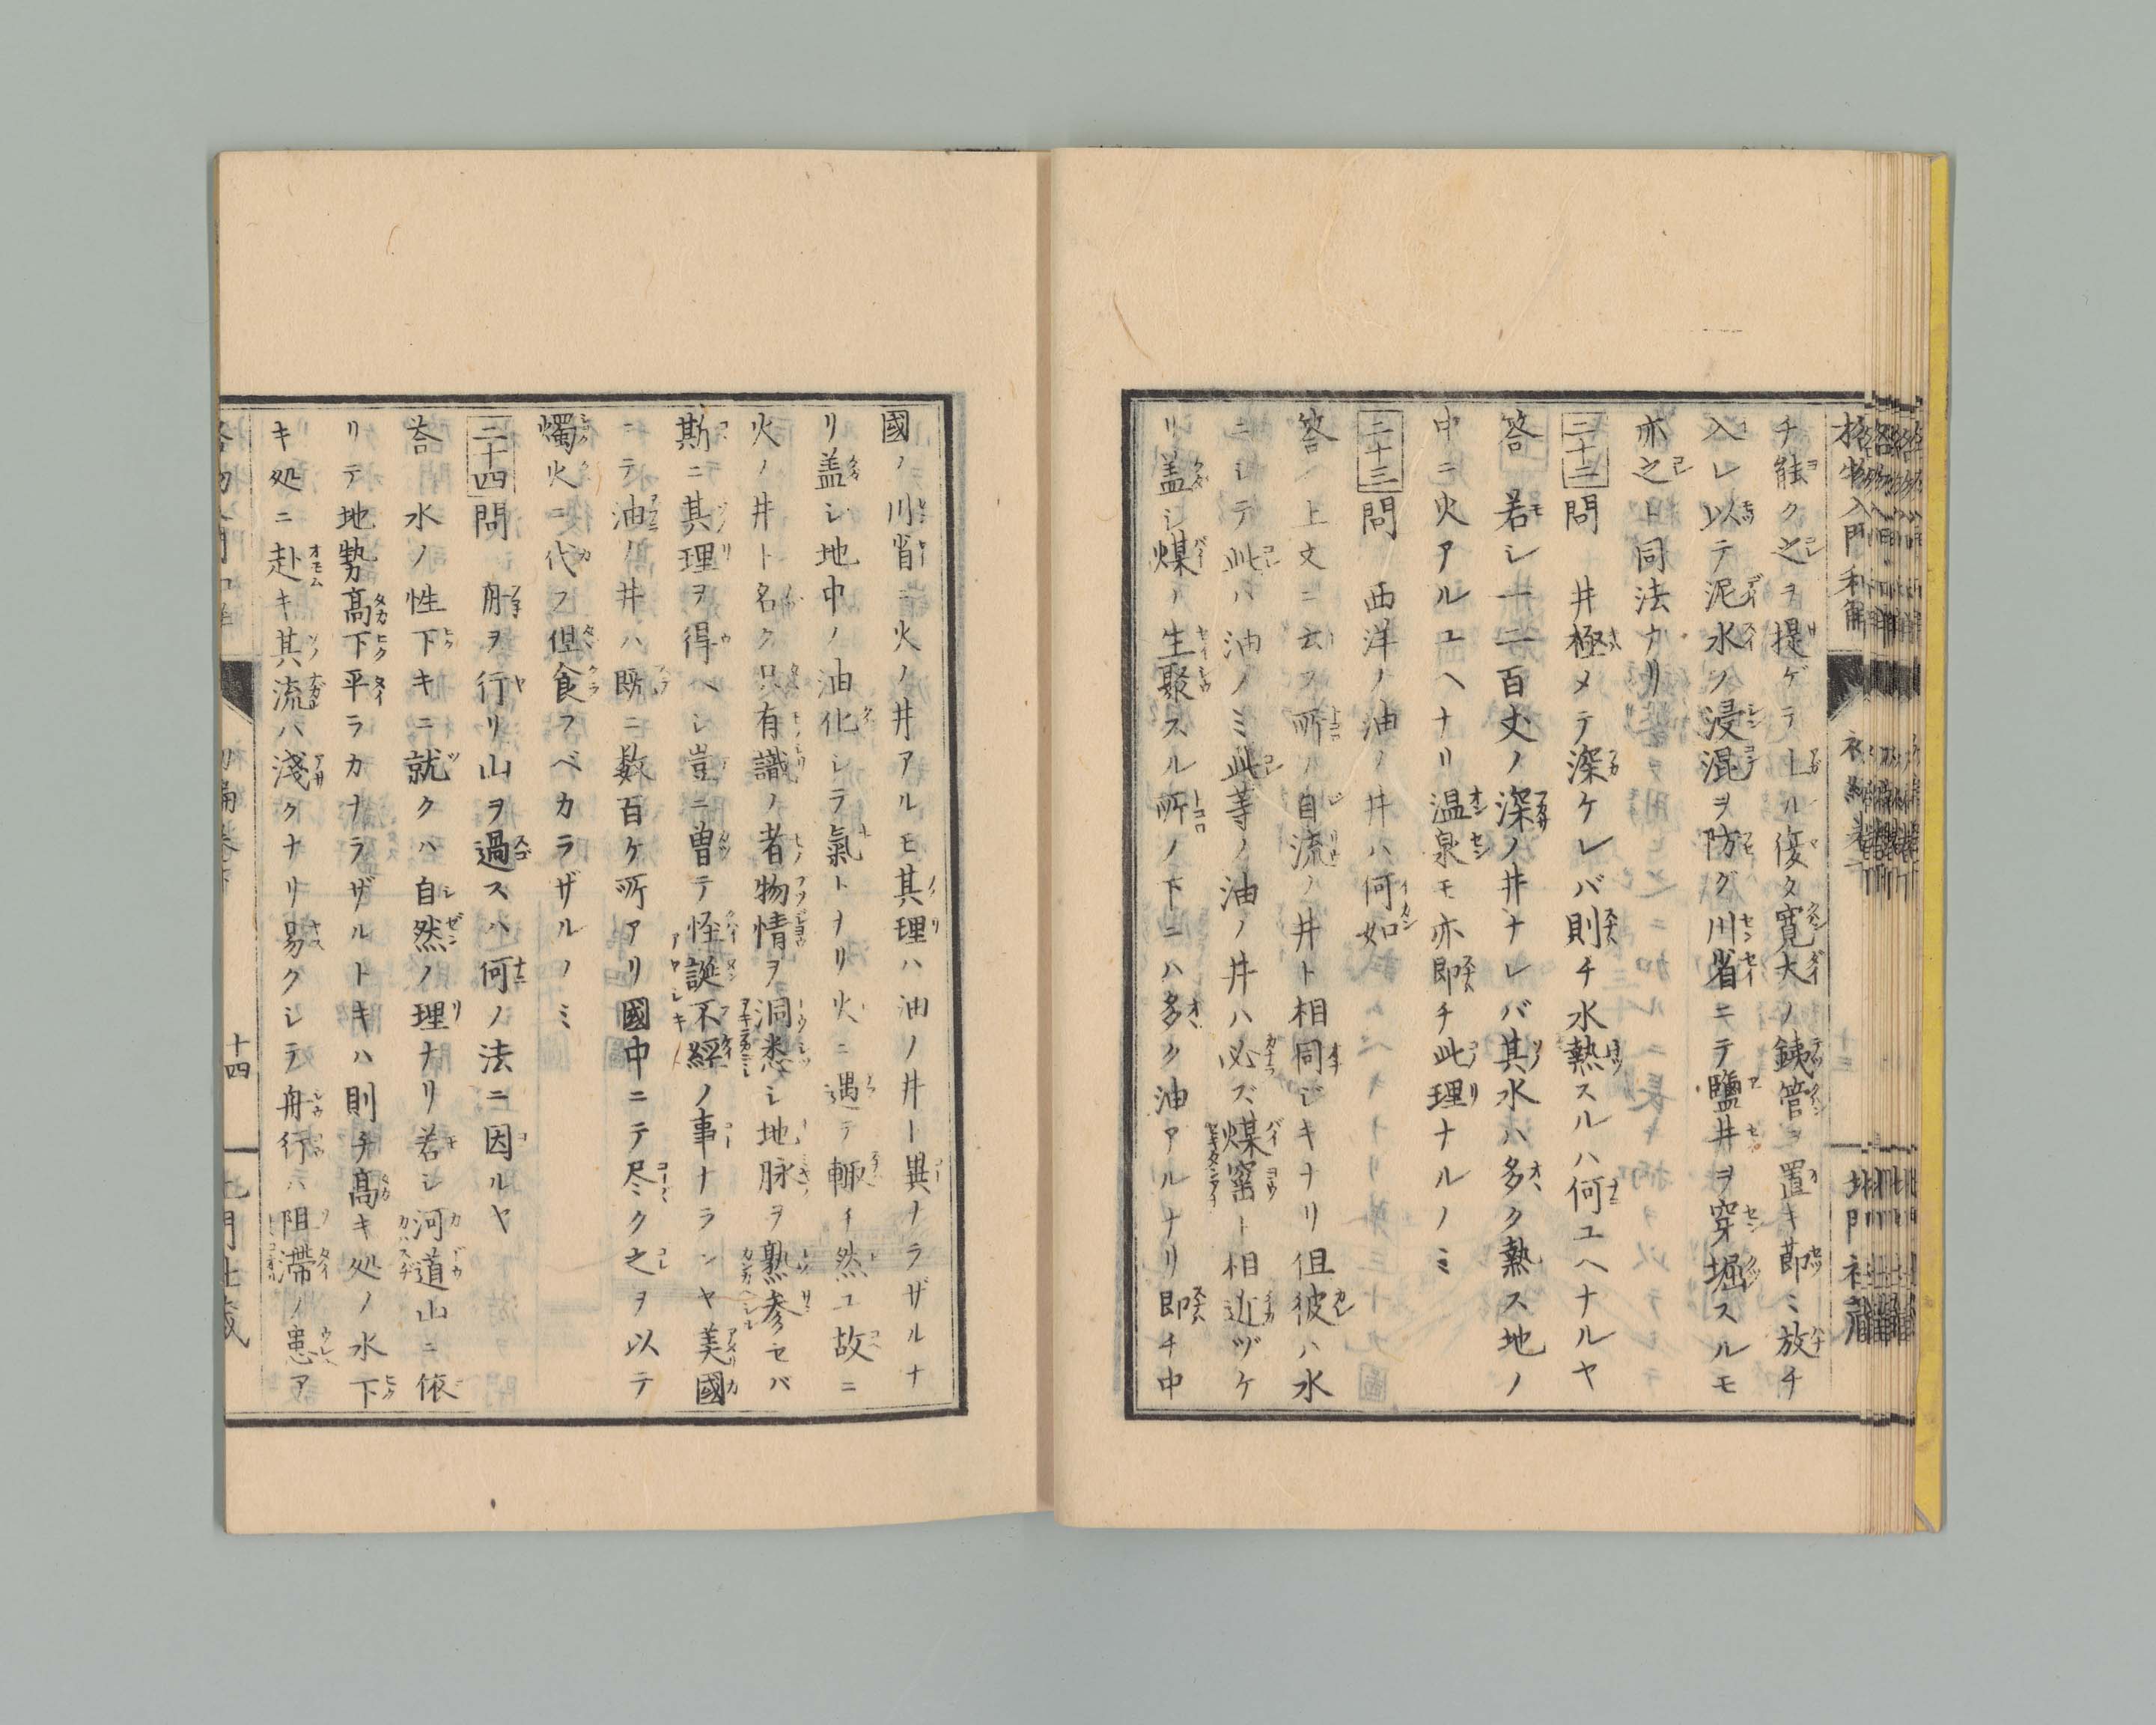 格物入門和解 初編巻下 北門社藏
チ能ク之ヲ提ゲテ上ル復タ寛大ノ銕管ヲ置キ節ミ放チ
入レ以テ泥水ノ浸混ヲ防グ川省ニテ鹽井ヲ穿堀スルモ
亦之ト同法ナリ
二十二問 井極メテ深ケレバ則チ水熱スルハ何ユヘナルヤ
答 若シ一二百丈ノ深ノ井ナレバ其水ハ多ク熱ス地ノ
中ニ火アルユヘナリ温泉モ亦即チ此理ナルノミ
二十三問 西洋ノ油ノ井ハ何如
答 上文ニ云フ所ノ自流ノ井ト相同ジキナリ但彼ハ水
ニシテ此ハ油ノミ此等ノ油ノ井ハ必ズ煤窰ト相近ヅケ
リ盖シ煤ノ生聚スル所ノ下ニハ多ク油アルナリ即チ中
國ノ川省ニ火ノ井アルモ其理ハ油ノ井ト異ナラザルナ
リ盖シ地中ノ油化シテ氣トナリ火ニ遇テ輙イ然ユ故ニ
火ノ井ト名ク只有識ノ者物情ヲ洞悉シ地脉ヲ熟參セバ
斯ニ其理ヲ得ベシ豈ニ曽テ怪誕不經ノ事ナランヤ美國
ニテ油ノ井ハ既ニ数百ケ所アリ國中ニテ尽ク之ヲ以テ
燭火ニ代フ但食フベカラザルノミ
二十四問 舟ヲ行リ山ヲ過スハ何ノ法ニ因ルヤ
荅 水ノ性下キニ就クハ自然ノ理ナリ若シ河道山ニ依
リテ地勢髙下平ラカナラザルトキハ則チ髙キ処ノ水下
キ処ニ赴キ其流ハ淺クナリ易クシテ舟行ハ阻滯ノ患ア
十四